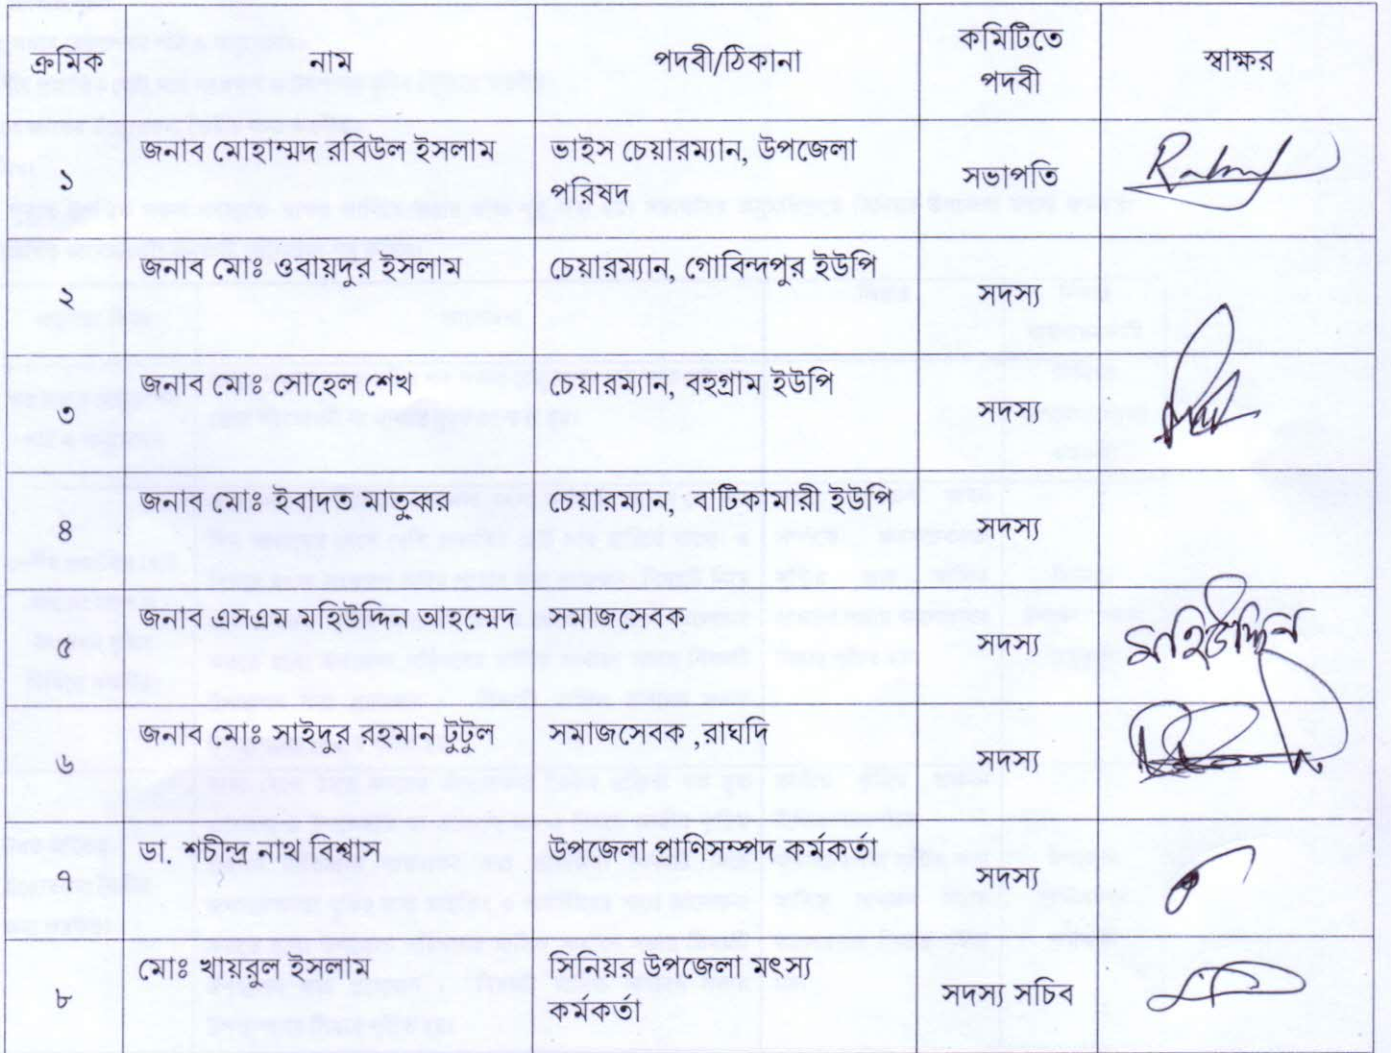 ক্রমিক নাম পদবী/ঠিকানা কমিটিতে পদবী স্বাক্ষর
১ জনাব মোহাম্মদ রবিউল ইসলাম ভাইস চেয়ারম্যান, উপজেলা পরিষদ সভাপতি
২ জনাব মোঃ ওবায়দুর ইসলাম চেয়ারম্যান, গোবিন্দপুর ইউপি সদস্য
৩ জনাব মোঃ সোহেল শেখ চেয়ারম্যান, বহুগ্রাম ইউপি সদস্য
৪ জনাব মোঃ ইবাদত মাতুব্বর চেয়ারম্যান, বাটিকামারী ইউপি সদস্য
৫ জনাব এসএম মহিউদ্দিন আহম্মেদ সমাজসেবক সদস্য মহিউদ্দিন
৬ জনাব মোঃ সাইদুর রহমান টুটুল সমাজসেবক ,রাঘদি সদস্য
৭ ডা. শচীন্দ্র নাথ বিশ্বাস উপজেলা প্রাণিসম্পদ কর্মকর্তা সদস্য
৮ মোঃ খায়রুল ইসলাম সিনিয়র উপজেলা মৎস্য কর্মকর্তা সদস্য সচিব